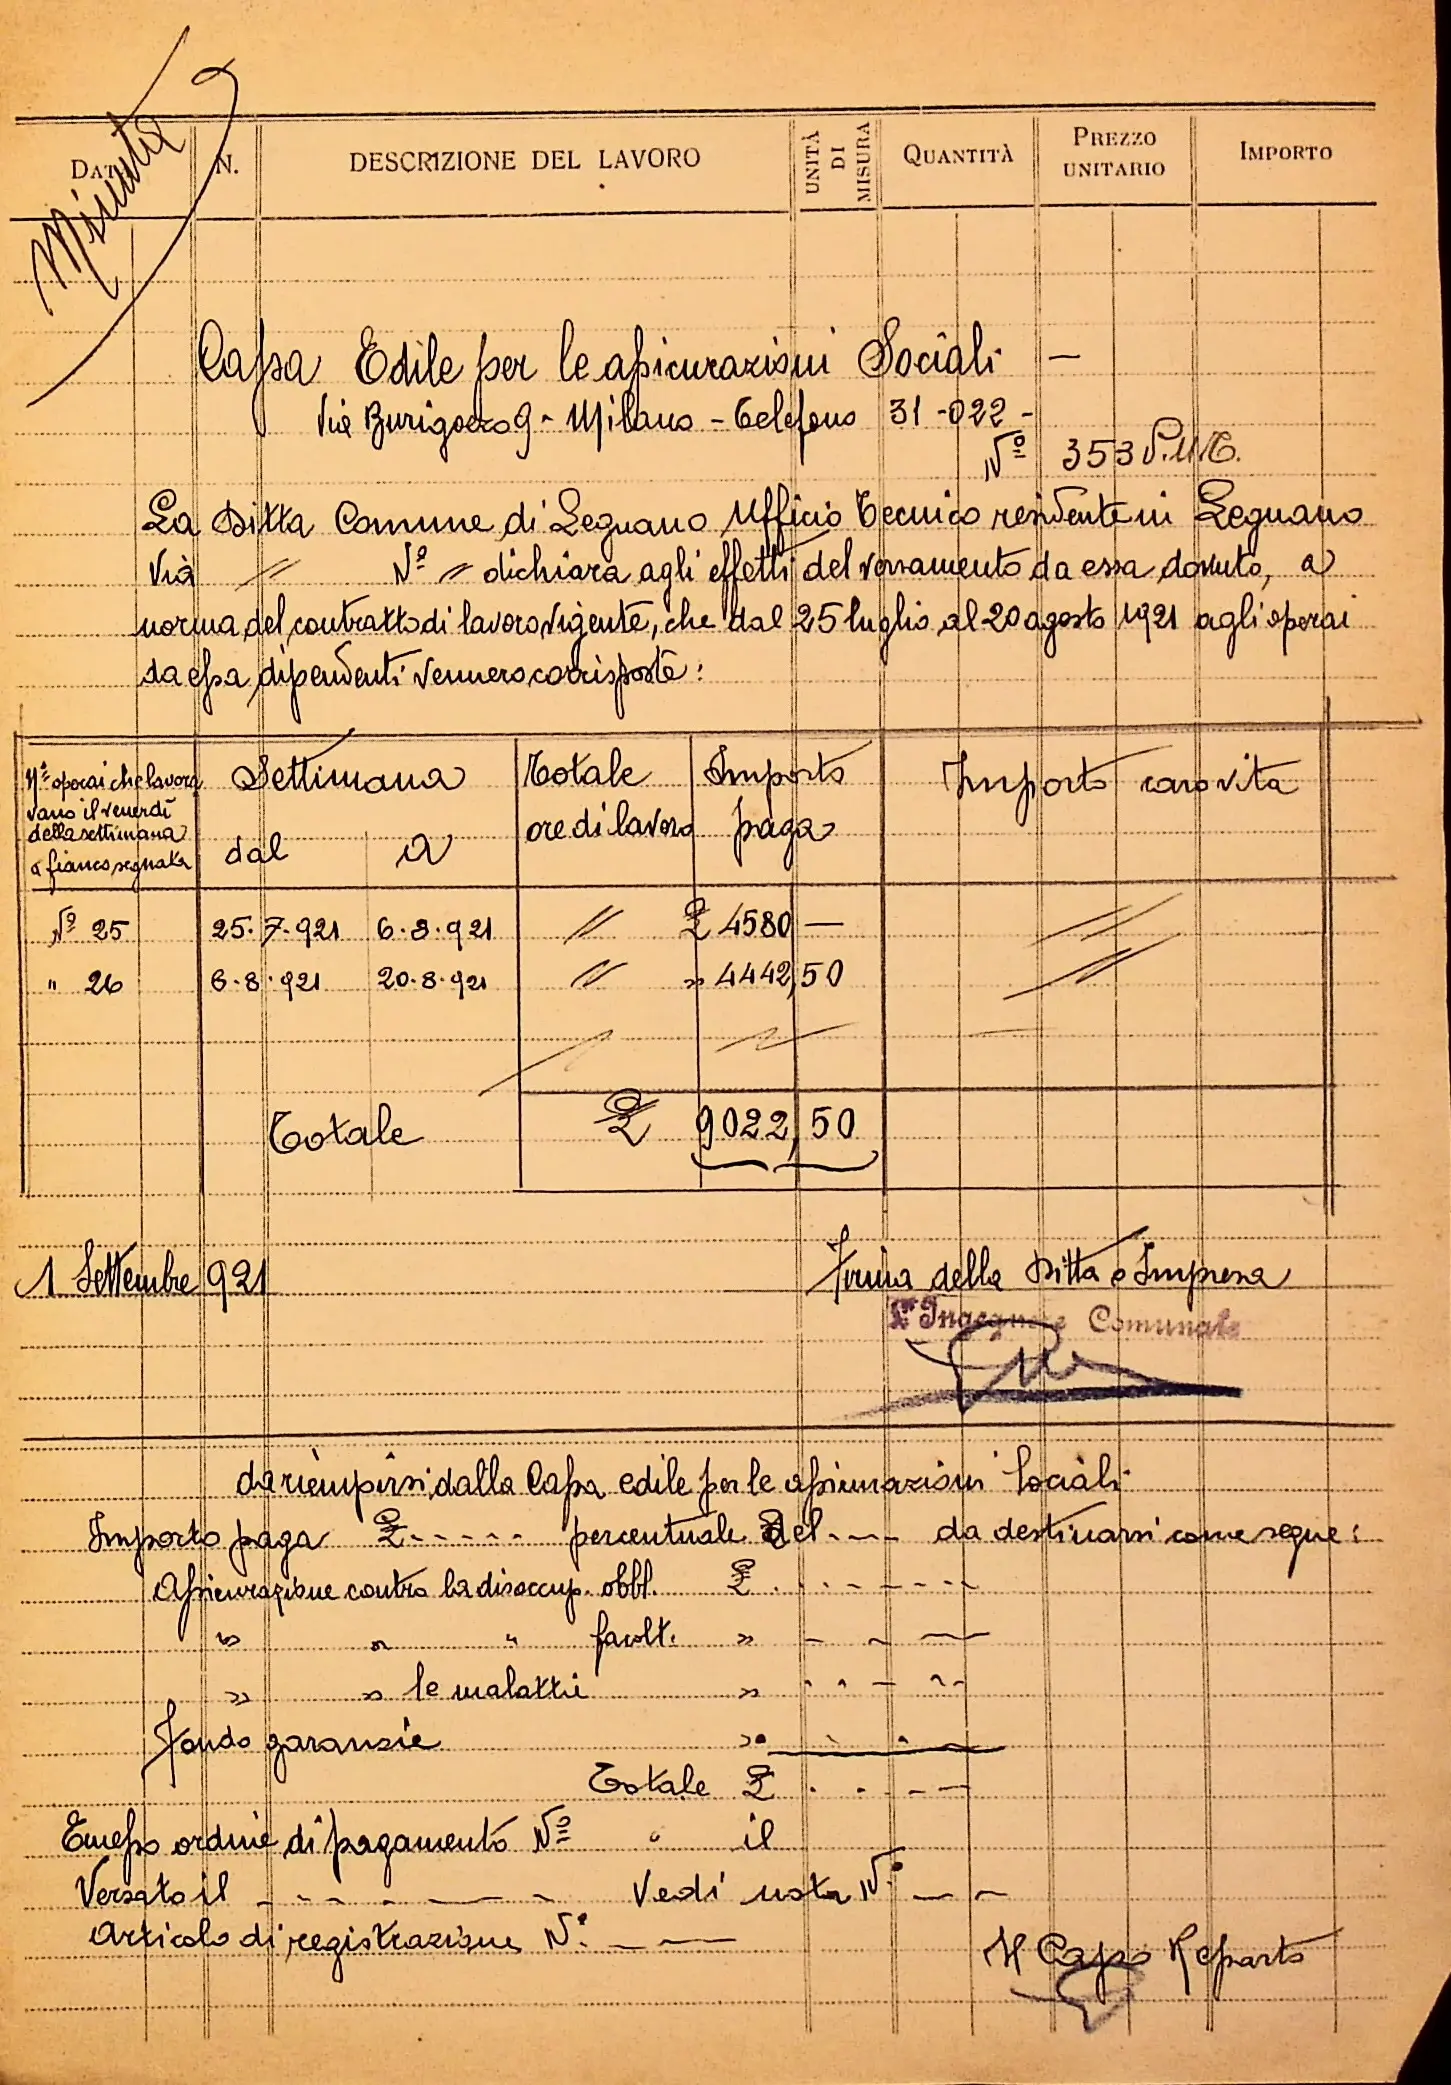 Minuta
DATA N. DESCRIZIONE DEL LAVORO UNITÀ DI MISURA QUANTITÀ PREZZO UNITARIO IMPORTO
Cassa Edile per le assicurazioni Sociali —
Via Burigozzo 9 - Milano - Telefono 31-022 -
Nº 353 P.U.T.
La Ditta Comune di Legnano Ufficio Tecnico residente in Legnano
Via // Nº // dichiara agli effetti del versamento da essa dovuto, a
norma del contratto di lavoro vigente, che dal 25 luglio al 20 agosto 1921 agli operai
da essa dipendenti vennero corrisposte:
Nº operai che lavora
vano il venerdì
della settimana
a fianco segnata
Settimana
dal a
Totale
ore di lavoro
Importo
paga
Importo caro vita
Nº 25 25.7.921 6.8.921 // £ 4580 — //
" 26 6.8.921 20.8.921 // " 4442,50 //
Totale £ 9022,50
1 Settembre 921
Firma della Ditta o Impresa
L'Ingegnere Comunale
da riempirsi dalla Cassa edile per le assicurazioni sociali
Importo paga £ ----- percentuale del ---- da destinarsi come segue:
Assicurazione contro la disoccup. obbl. £ . . - - - - -
" " " facolt. " - - —
" " le malattie " . . - - -
Fondo garanzie "
Totale £ . . - - -
Emesso ordine di pagamento Nº il
Versato il - - - - — - Vedi nota Nº — -
Articolo di registrazione Nº — —
Il Capo Reparto